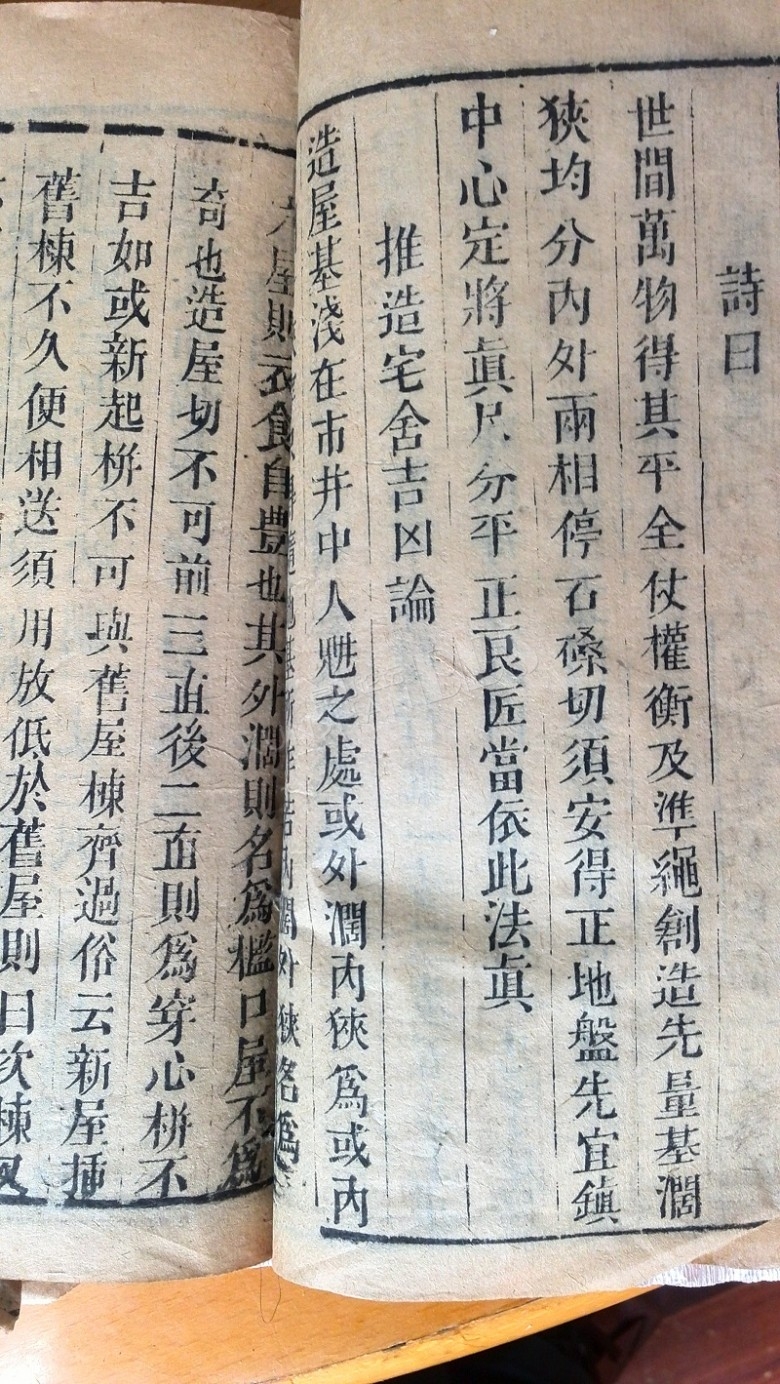 詩曰
世間萬物得其平全仗權衡及準繩創造先量基濶
狹均分內外兩相停石磉切須安得正地盤先宜鎮
中心定將眞尺分平正良匠當依此法眞
推造宅舍吉凶論
造屋基淺在市井中人魁之處或外濶內狹爲或內
濶外狹
屋則衣食自豊也其外濶則名爲檻口屋不爲
奇也造屋切不可前三直後二直則爲穿心栟不
吉如或新起栟不可與舊屋棟齊過俗云新屋插
舊棟不久便相送須用放低於舊屋則曰次棟又